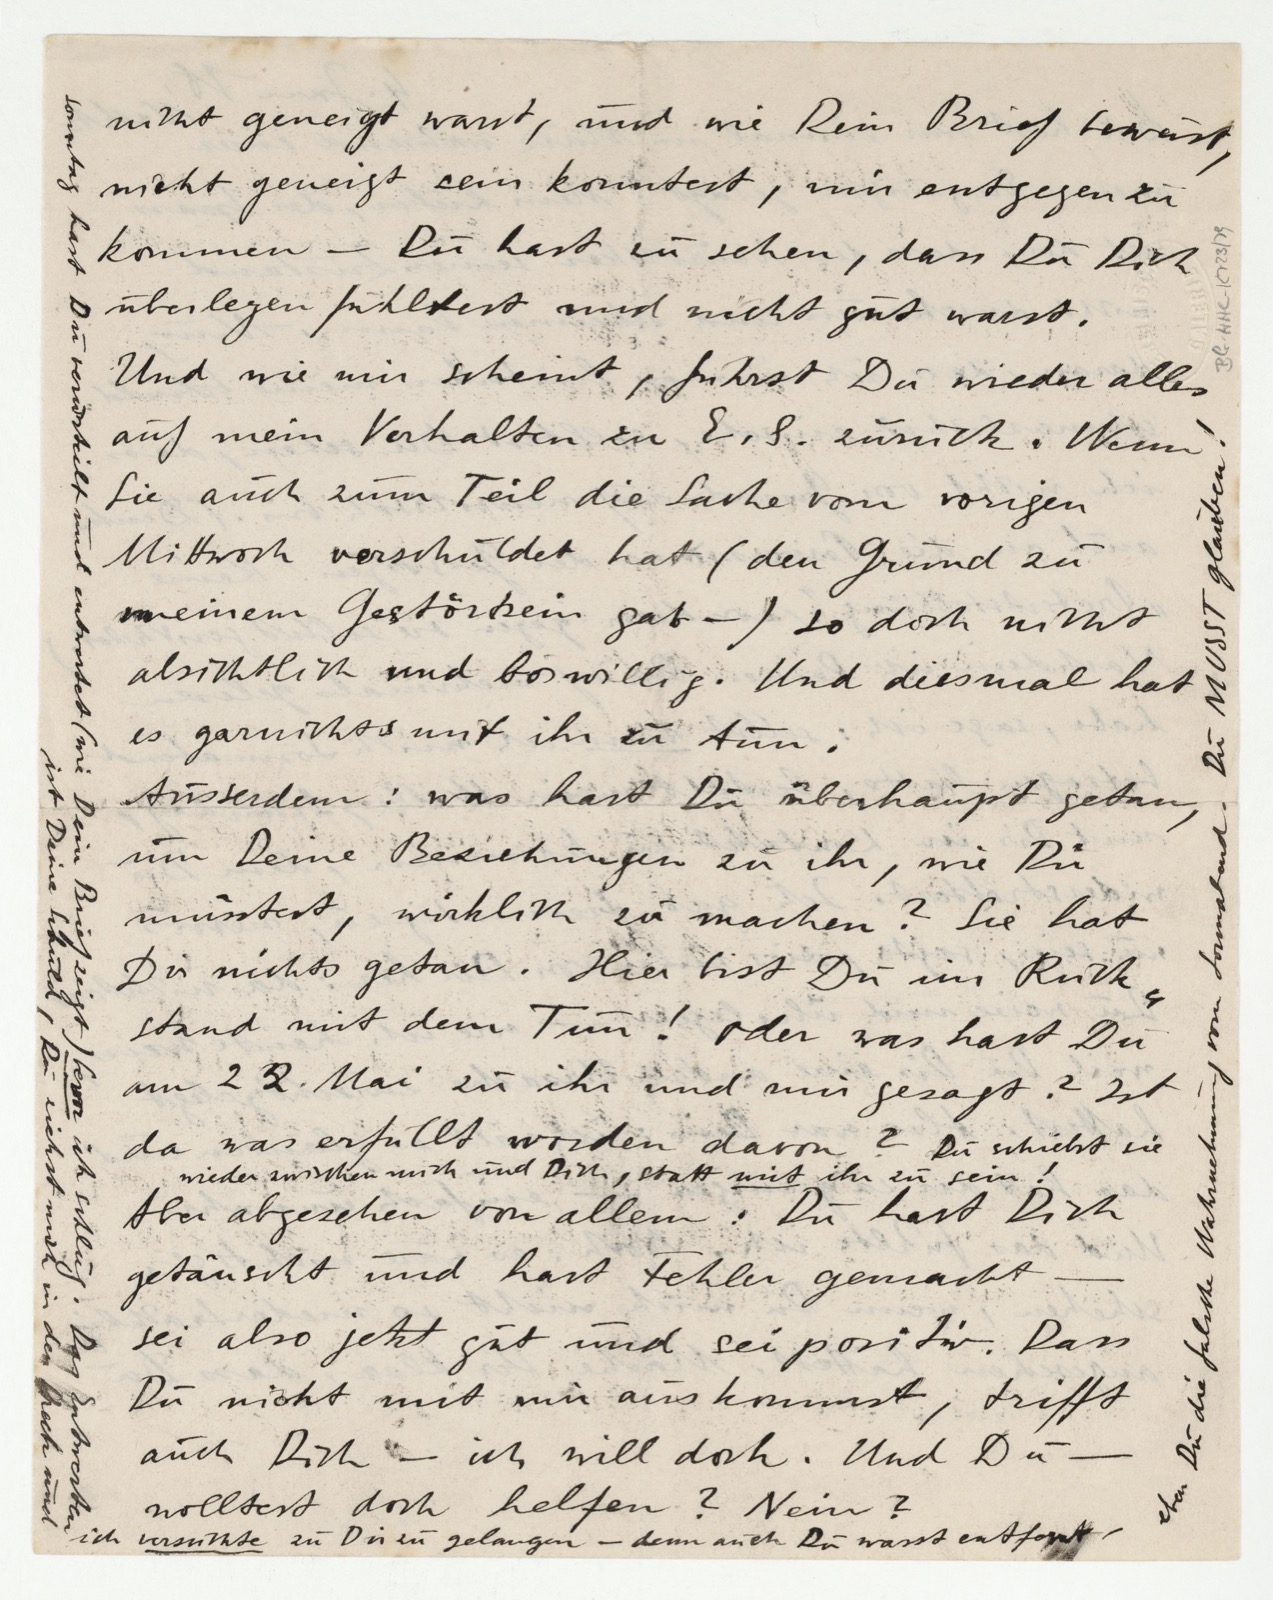 nicht geneigt warst, und wie Dein Brief beweist,
nicht geneigt sein konntest, mir entgegen zu
kommen — Du hast zu sehen, dass Du Dich
überlegen fühltest und nicht gut warst.
Und wie mir scheint, führst Du wieder alles
auf mein Verhalten zu E. S. zurück. Wenn
Sie auch zum Teil die Sache vom vorigen
Mittwoch verschuldet hat (den Grund zu
meinem Gestörtsein gab —) so doch nicht
absichtlich und böswillig. Und diesmal hat
es garnichts mit ihr zu tun.
Ausserdem: was hast Du überhaupt getan,
um Deine Beziehungen zu ihr, wie Du
müsstest, wirklich zu machen? Sie hat
Dir nichts getan. Hier bist Du im Rück„
stand mit dem Tun! oder was hast Du
am 22. Mai zu ihr und mir gesagt? Ist
da was erfüllt worden davon? Du schiebst sie
wieder zwischen mich und Dich, statt mit ihr zu sein!
Aber abgesehen von allem: Du hast Dich
getäuscht und hast Fehler gemacht —
sei also jetzt gut und sei positiv. Dass
Du nicht mit mir auskommst, trifft
auch Dich — ich will doch. Und Du —
wolltest doch helfen? Nein?
eben Du die falsche Wahrnehmung vom Sonnabend. Du MUSST glauben!
sonntag hast Du verurteilt und entwertet (wie Dein Brief zeigt) bevor ich schlug. Das Entwerten
ist Deine Schuld, Du ziehst mich in den Dreck und
ich versuchte zu Dir zu gelangen — denn auch Du warst entfernt,
BG-HHC-K 723/79